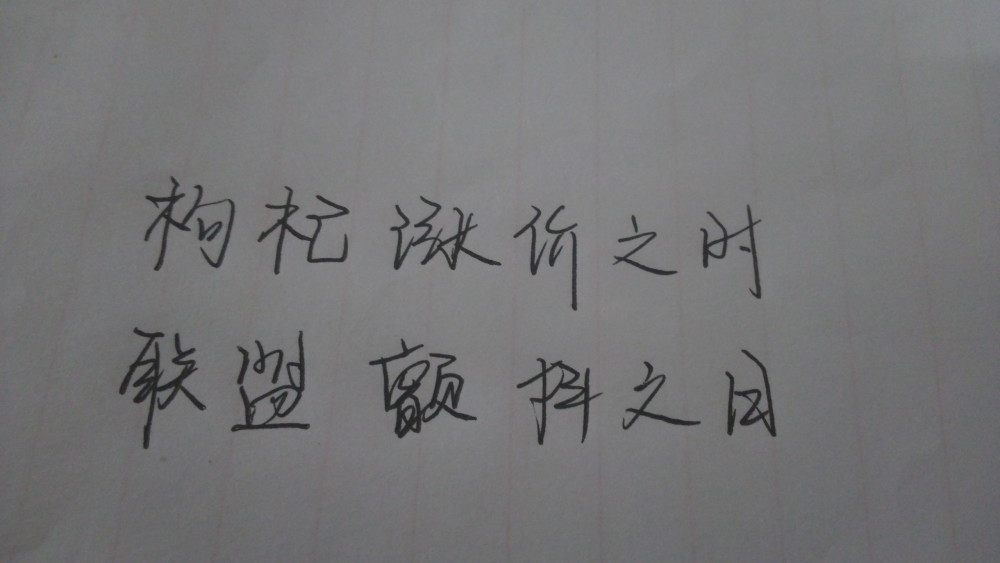 枸杞涨价之时
联盟颤抖之日